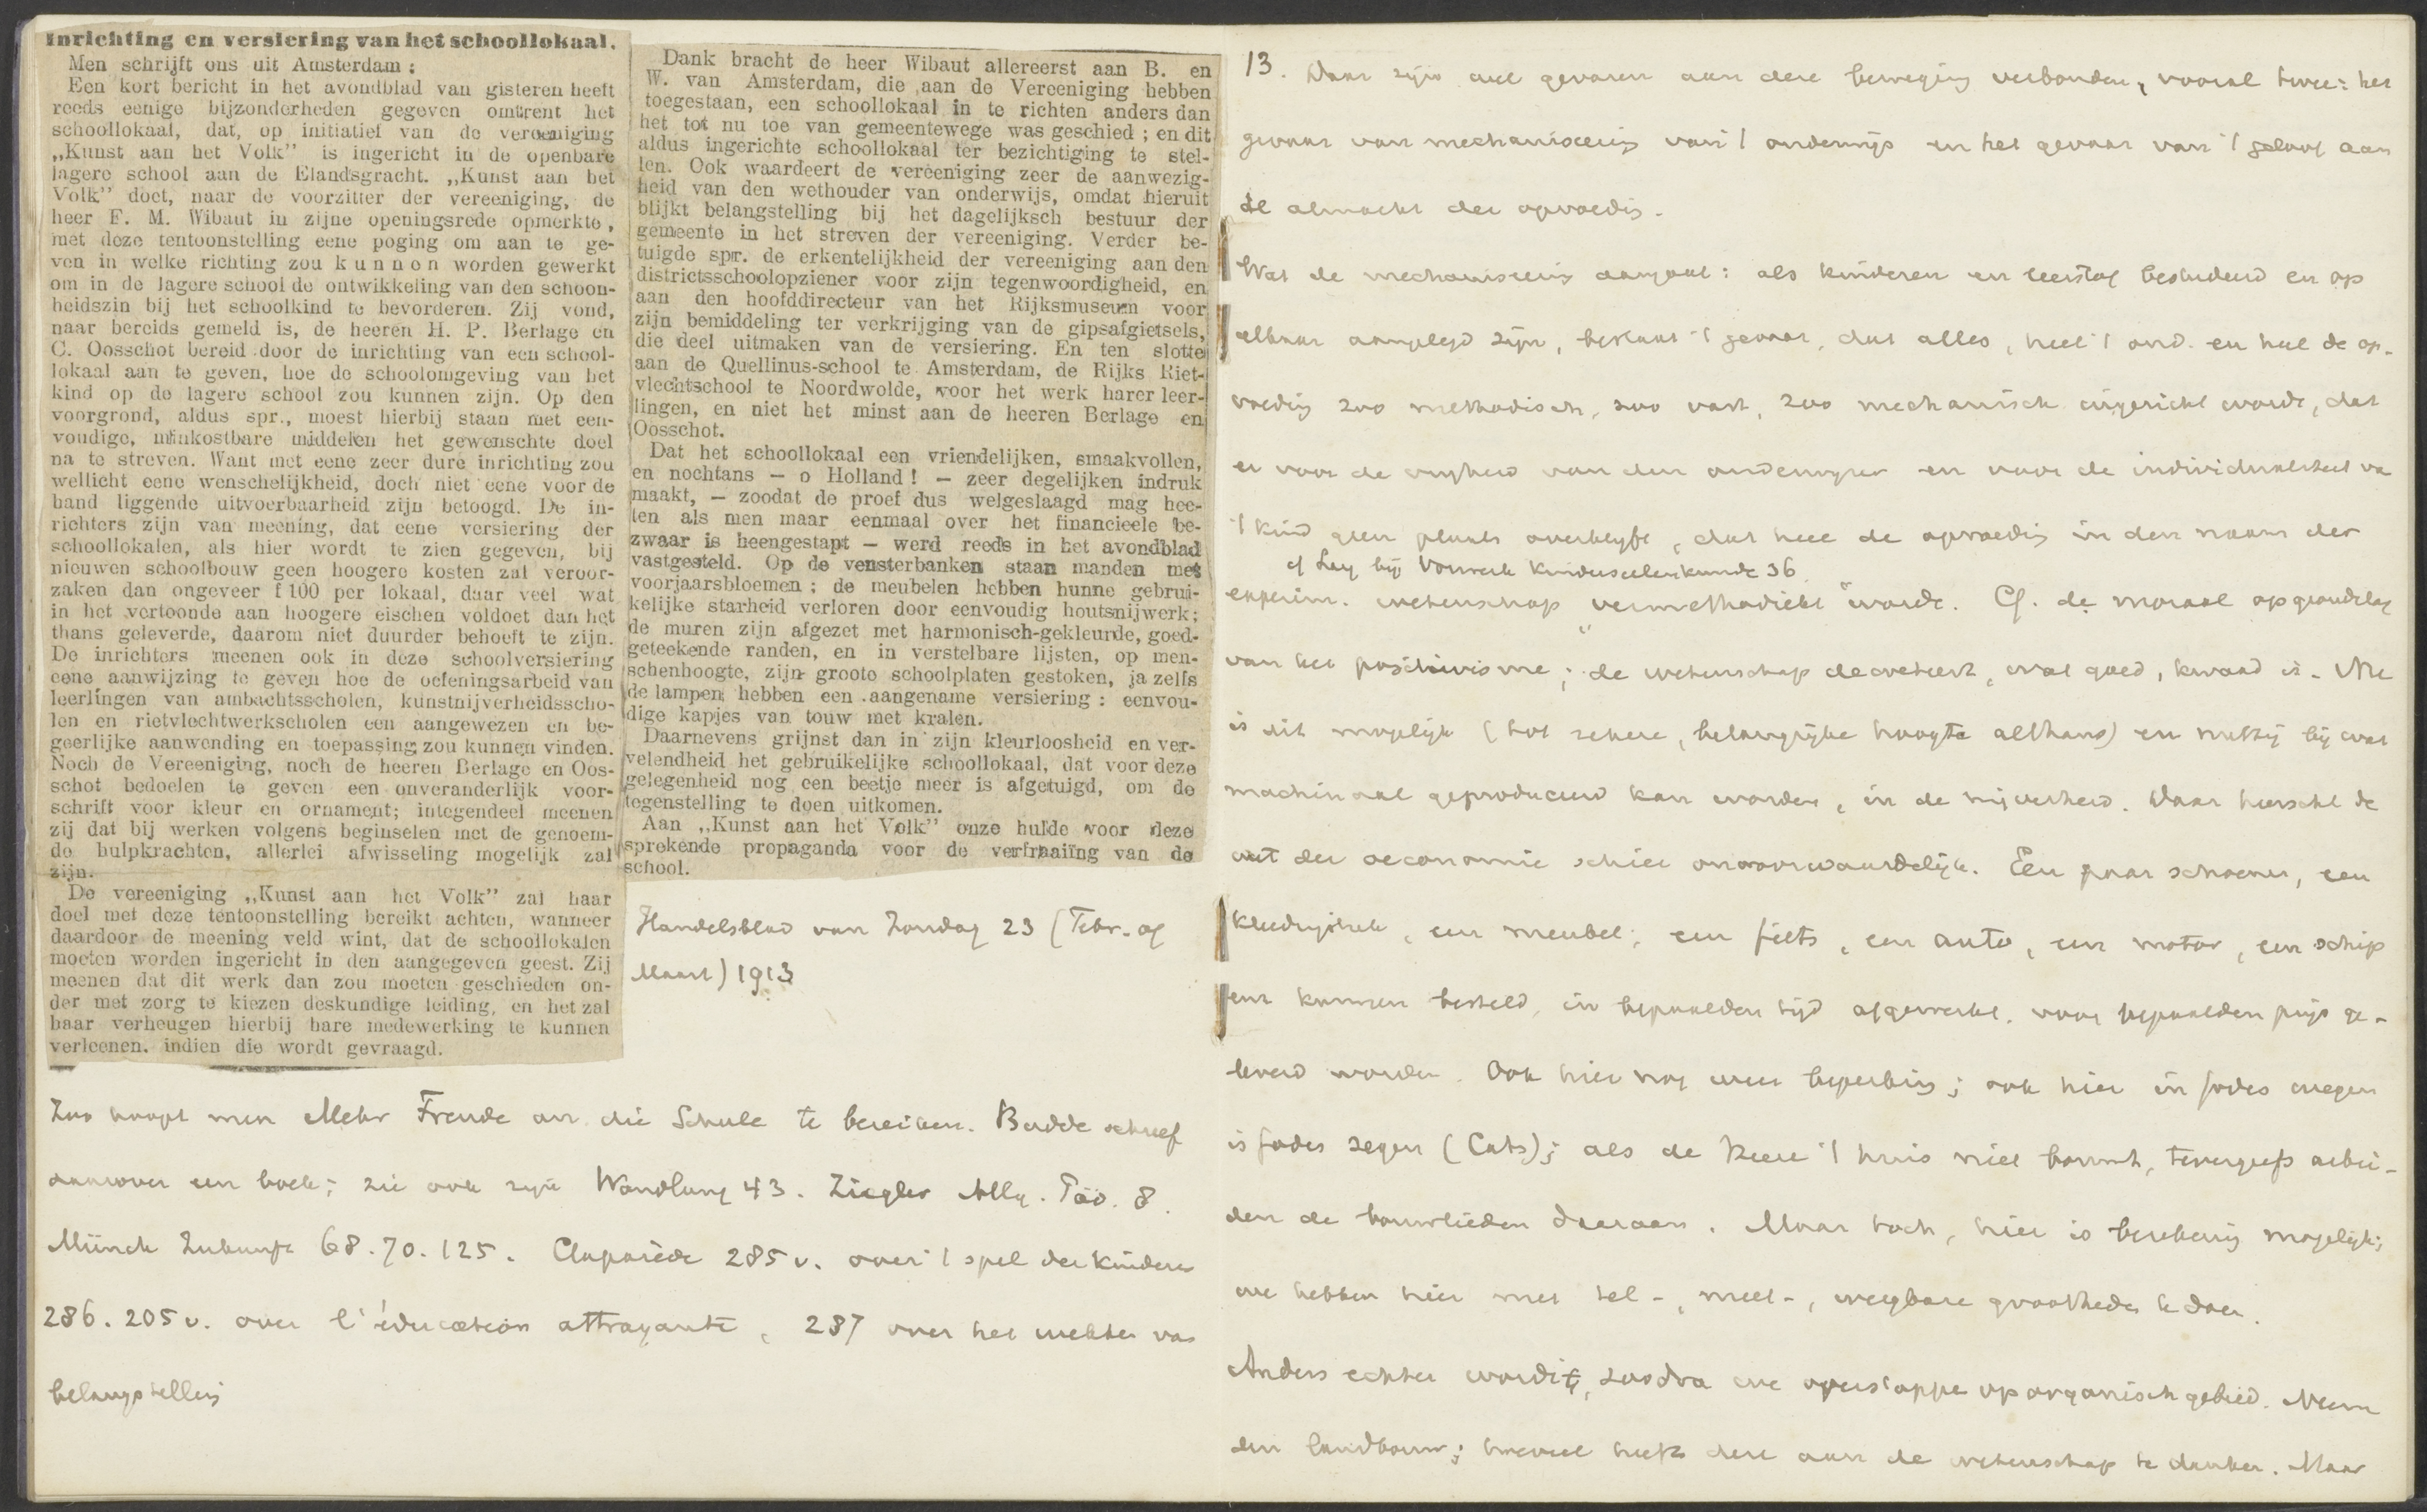 Inrichting en versiering van het schoollokaal.
Men schrijft ons uit Amsterdam:
Een kort bericht in het avondblad van gisteren heeft
reeds eenige bijzonderheden gegeven omtrent het
schoollokaal, dat, op initiatief van de vereeniging
„Kunst aan het Volk” is ingericht in de openbare
lagere school aan de Elandsgracht. „Kunst aan het
Volk” doet, naar de voorzitter der vereeniging, de
heer F. M. Wibaut in zijne openingsrede opmerkte,
met deze tentoonstelling eene poging om aan te ge-
ven in welke richting zou kunnen worden gewerkt
om in de lagere school de ontwikkeling van den schoon-
heidszin bij het schoolkind te bevorderen. Zij vond,
naar bereids gemeld is, de heeren H. P. Berlage en
C. Oosschot bereid door de inrichting van een school-
lokaal aan te geven, hoe de schoolomgeving van het
kind op de lagere school zou kunnen zijn. Op den
voorgrond, aldus spr., moest hierbij staan met een-
voudige, minkostbare middelen het gewenschte doel
na te streven. Want met eene zeer dure inrichting zou
wellicht eene wenschelijkheid, doch niet eene voor de
hand liggende uitvoerbaarheid zijn betoogd. De in-
richters zijn van meening, dat eene versiering der
schoollokalen, als hier wordt te zien gegeven, bij
nieuwen schoolbouw geen hoogere kosten zal veroor-
zaken dan ongeveer f 100 per lokaal, daar veel wat
in het vertoonde aan hoogere eischen voldoet dan het
thans geleverde, daarom niet duurder behoeft te zijn.
De inrichters meenen ook in deze schoolversiering
eene aanwijzing te geven hoe de oefeningsarbeid van
leerlingen van ambachtsscholen, kunstnijverheidsscho-
len en rietvlechtwerkscholen een aangewezen en be-
geerlijke aanwending en toepassing zou kunnen vinden.
Noch de Vereeniging, noch de heeren Berlage en Oos-
schot bedoelen te geven een onveranderlijk voor-
schrift voor kleur en ornament; integendeel meenen
zij dat bij werken volgens beginselen met de genoem-
de hulpkrachten, allerlei afwisseling mogelijk zal
zijn.
De vereeniging „Kunst aan het Volk” zal haar
doel met deze tentoonstelling bereikt achten, wanneer
daardoor de meening veld wint, dat de schoollokalen
moeten worden ingericht in den aangegeven geest. Zij
meenen dat dit werk dan zou moeten geschieden on-
der met zorg te kiezen deskundige leiding, en het zal
haar verheugen hierbij hare medewerking te kunnen
verleenen, indien die wordt gevraagd.
Dank bracht de heer Wibaut allereerst aan B. en
W. van Amsterdam, die aan de Vereeniging hebben
toegestaan, een schoollokaal in te richten anders dan
het tot nu toe van gemeentewege was geschied; en dit
aldus ingerichte schoollokaal ter bezichtiging te stel-
len. Ook waardeert de vereeniging zeer de aanwezig-
heid van den wethouder van onderwijs, omdat hieruit
blijkt belangstelling bij het dagelijksch bestuur der
gemeente in het streven der vereeniging. Verder be-
tuigde spr. de erkentelijkheid der vereeniging aan den
districtsschoolopziener voor zijn tegenwoordigheid, en
aan den hoofddirecteur van het Rijksmuseum voor
zijn bemiddeling ter verkrijging van de gipsafgietsels,
die deel uitmaken van de versiering. En ten slotte
aan de Quellinus-school te Amsterdam, de Rijks Riet-
vlechtschool te Noordwolde, voor het werk harer leer-
lingen, en niet het minst aan de heeren Berlage en
Oosschot.
Dat het schoollokaal een vriendelijken, smaakvollen,
en nochtans — o Holland! — zeer degelijken indruk
maakt, — zoodat de proef dus welgeslaagd mag hee-
ten als men maar eenmaal over het financieele be-
zwaar is heengestapt — werd reeds in het avondblad
vastgesteld. Op de vensterbanken staan manden met
voorjaarsbloemen; de meubelen hebben hunne gebrui-
kelijke starheid verloren door eenvoudig houtsnijwerk;
de muren zijn afgezet met harmonisch-gekleurde, goed-
geteekende randen, en in verstelbare lijsten, op men-
schenhoogte, zijn groote schoolplaten gestoken, ja zelfs
de lampen hebben een aangename versiering: eenvou-
dige kapjes van touw met kralen.
Daarnevens grijnst dan in zijn kleurloosheid en ver-
velendheid het gebruikelijke schoollokaal, dat voor deze
gelegenheid nog een beetje meer is afgetuigd, om de
tegenstelling te doen uitkomen.
Aan „Kunst aan het Volk” onze hulde voor deze
sprekende propaganda voor de verfraaiing van de
school.
Handelsblad van Zondag 23 (Febr. of
Maart) 1913
Zoo hoopt men Mehr Freude an die Schule te bereiken. Budde schreef
daarover een boek; zie ook zijn Wandlung 43. Ziegler Allg. Päd. 8.
Münch Zukunft 68.70.125. Claparède 285 v. over 't spel der kinderen
286. 205 v. over l'éducation attrayante, 287 over het wekken van
belangstelling
13. Daar zijn wel gevaren aan deze beweging verbonden, vooral twee: het
gevaar van mechaniseering van 't onderwijs en het gevaar van 't geloof aan
de almacht der opvoeding.
Wat de mechaniseering aangaat: als kinderen en leerstof bestudeerd en op
elkaar aangelegd zijn, bestaat 't gevaar, dat alles, heel 't ond. en heel de op-
voeding zoo methodisch, zoo vast, zoo mechanisch ingericht worde, dat
er voor de vrijheid van den onderwijzer en voor de individualiteit van
't kind geen plaats overblijft, dat heel de opvoeding in den naam der
cf Lay bij Vorwerk Kinderseelenkunde 36.
experim. wetenschap „vermethodiekt” worde. Cf. de moraal op grondslag
van het positivisme; de wetenschap decreteert, wat goed, kwaad is. Nu
is dit mogelijk (tot zekere, belangrijke hoogte althans) en nuttig bij wat
machinaal geproduceerd kan worden, in de nijverheid. Daar heerscht de
wet der oeconomie schier onvoorwaardelijk. Een paar schoenen, een
kleedingstuk, een meubel, een fiets, een auto, een motor, een schip
enz kunnen besteld, in bepaalden tijd afgewerkt, voor bepaalden prijs ge-
leverd worden. Ook hier nog weer beperking; ook hier in Godes wegen
is Godes zegen (Cats); als de Heere 't huis niet bouwt, tevergeefs arbei-
den de bouwlieden daaraan. Maar toch, hier is berekening mogelijk;
we hebben hier met tel-, meet-, weegbare grootheden te doen.
Anders echter wordt 't, zoodra we overstappen op organisch gebied. Neem
den landbouw; hoeveel heeft deze aan de wetenschap te danken. Maar